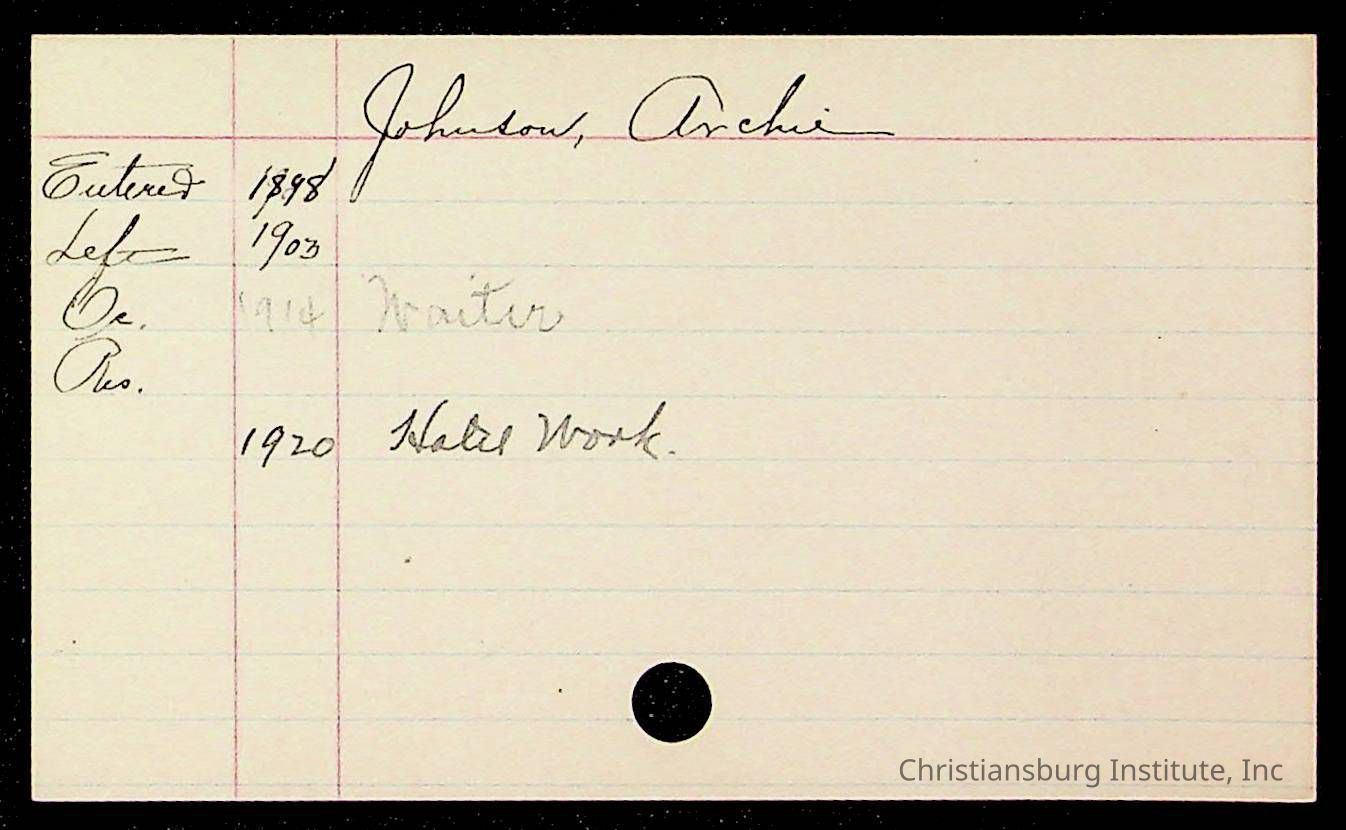 Johnson, Archie
Entered 1898
Left 1903
Oc. 1914 Waiter
Res.
1920 Hotel Work.
Christiansburg Institute, Inc